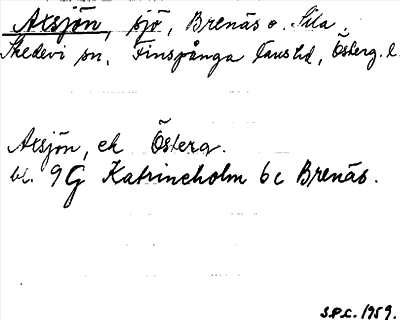 Axsjön, sjö, Brenäs o. Sila,
Skedevi sn, Finspånga läns hd, Österg. l.
Axsjön, ek Österg.
bl. 9G Katrineholm 6c Brenäs.
S.P.L. 1959.